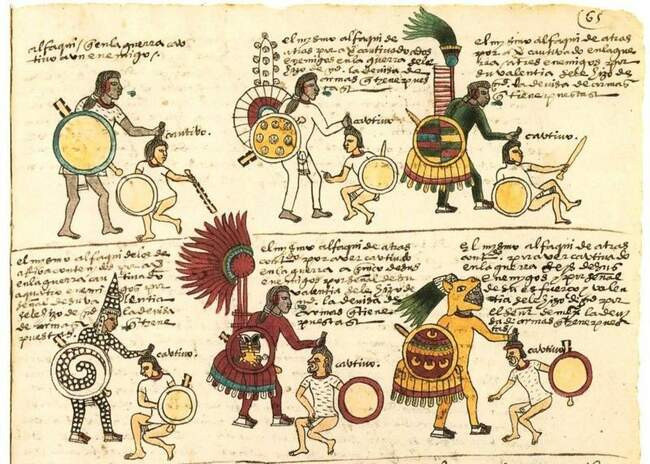 65
alfaqui / q̃ en la guerra cau
tivo a un enemigo.
cautivo.
el mismo alfaqui de
atras por aver cautivado dos
enemigos en la guerra se le
hizo md. la devisa de
armas q̃ tiene pues
tas
cautivo
el mismo alfaqui de atras
por aver cautivado en la gue
rra a tres enemigos por
su valentia se le hizo de
md. la devisa de armas
q̃ tiene puestas
cautivo.
el mismo alfaqui de los de
arriba contenidos
en la guerra cautivado
a quatro enemigos
señal de su valentia
se le hizo md. la devisa
de armas q̃ tiene
puestas
cautivo
el mismo alfaqui de atras
contdo. por aver cautivado
en la guerra a cinco de sus
enemigos por señal de su
valentia se le hizo de
md. la devisa de
armas q̃ tiene
puestas
cautivo.
el mismo alfaqui de atras
contdo. por aver cautivado
en la guerra seys de sus
enemigos, por señal
de su esfuerço y valen
tia se le hizo md. por
el señor de mexco. la devi
sa de armas q̃ tiene pues
tas
cautivo.